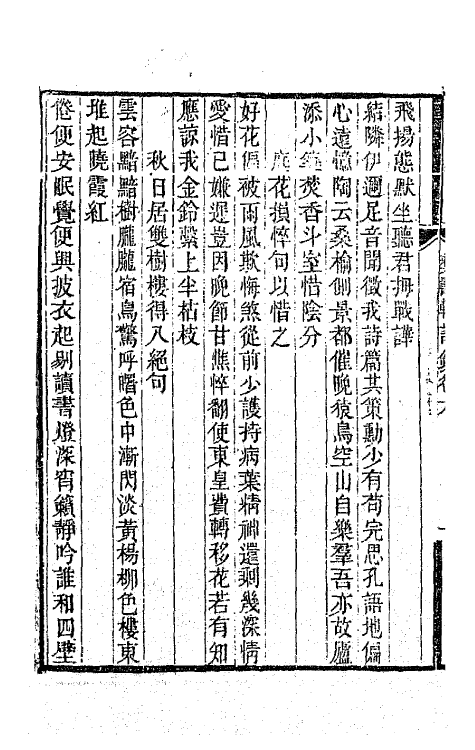 飛揚態默坐聽君拇戰譁
結隣伊邇足音聞徵我詩篇其策勳少有苟完思孔語地偏
心遠憶陶云桑榆創景都催晚猿鳥空山自樂羣吾亦故廬
添小 焚香斗室惜陰分
花損悴句以惜之
好花偏被雨風欺悔煞從前少護持病葉精神還剩幾深情
愛惜已嫌遲豈因晚節甘憔悴翻使東皇費轉移花若有知
應諒我金鈴繫上半枯枝
秋日居雙樹樓得八絕句
雲容黯黯樹朧朧宿鳥驚呼曙色中漸閃淡黃楊柳色樓東
堆起曉霞紅
倦便安眠覺便興披衣起剔讀書燈深宵籟靜吟誰和四壁